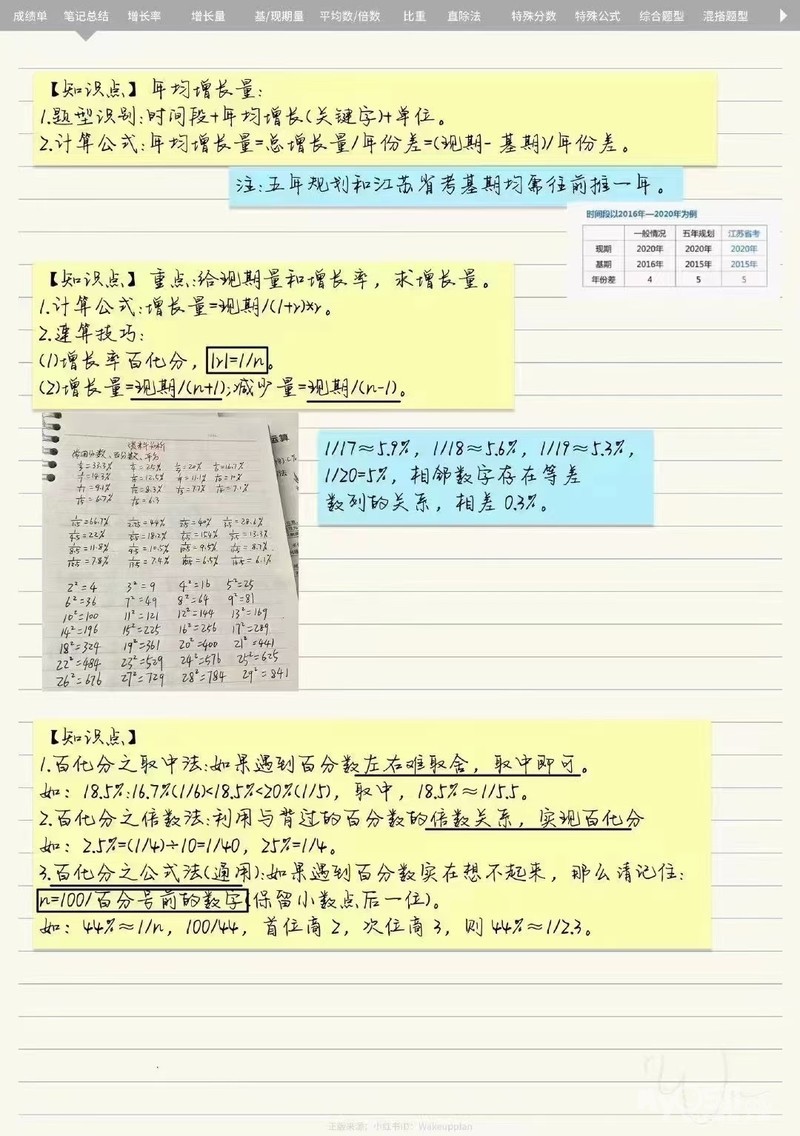 成绩单 笔记总结 增长率 增长量 基/现期量 平均数/倍数 比重 直除法 特殊分数 特殊公式 综合题型 混搭题型
【知识点】年均增长量:
1.题型识别:时间段+年均增长(关键字)+单位。
2.计算公式:年均增长量=总增长量/年份差=(现期-基期)/年份差。
注:五年规划和江苏省考基期均需往前推一年。
时间段以2016年—2020年为例
一般情况 五年规划 江苏省考
现期 2020年 2020年 2020年
基期 2016年 2015年 2015年
年份差 4 5 5
【知识点】重点:给现期量和增长率，求增长量。
1.计算公式:增长量=现期/(1+r)*r。
2.速算技巧:
(1)增长率百化分，|r|=1/n。
(2)增长量=现期/(n+1);减少量=现期/(n-1)。
常用分数、百分数、平方
2²=4 3²=9 4²=16 5²=25
6²=36 7²=49 8²=64 9²=81
10²=100 11²=121 12²=144 13²=169
14²=196 15²=225 16²=256 17²=289
18²=324 19²=361 20²=400 21²=441
22²=484 23²=529 24²=576 25²=625
26²=676 27²=729 28²=784 29²=841
1/17≈5.9%，1/18≈5.6%，1/19≈5.3%，
1/20=5%，相邻数字存在等差
数列的关系，相差0.3%。
【知识点】
1.百化分之取中法:如果遇到百分数左右难取舍，取中即可。
如：18.5%:16.7%(1/6)<18.5%<20%(1/5)，取中，18.5%≈1/5.5。
2.百化分之倍数法:利用与背过的百分数的倍数关系，实现百化分
如：2.5%=(1/4)÷10=1/40，25%=1/4。
3.百化分之公式法(通用):如果遇到百分数实在想不起来，那么请记住:
n=100/百分号前的数字(保留小数点后一位)。
如：44%≈1/n，100/44，首位商2，次位商3，则44%≈1/2.3。